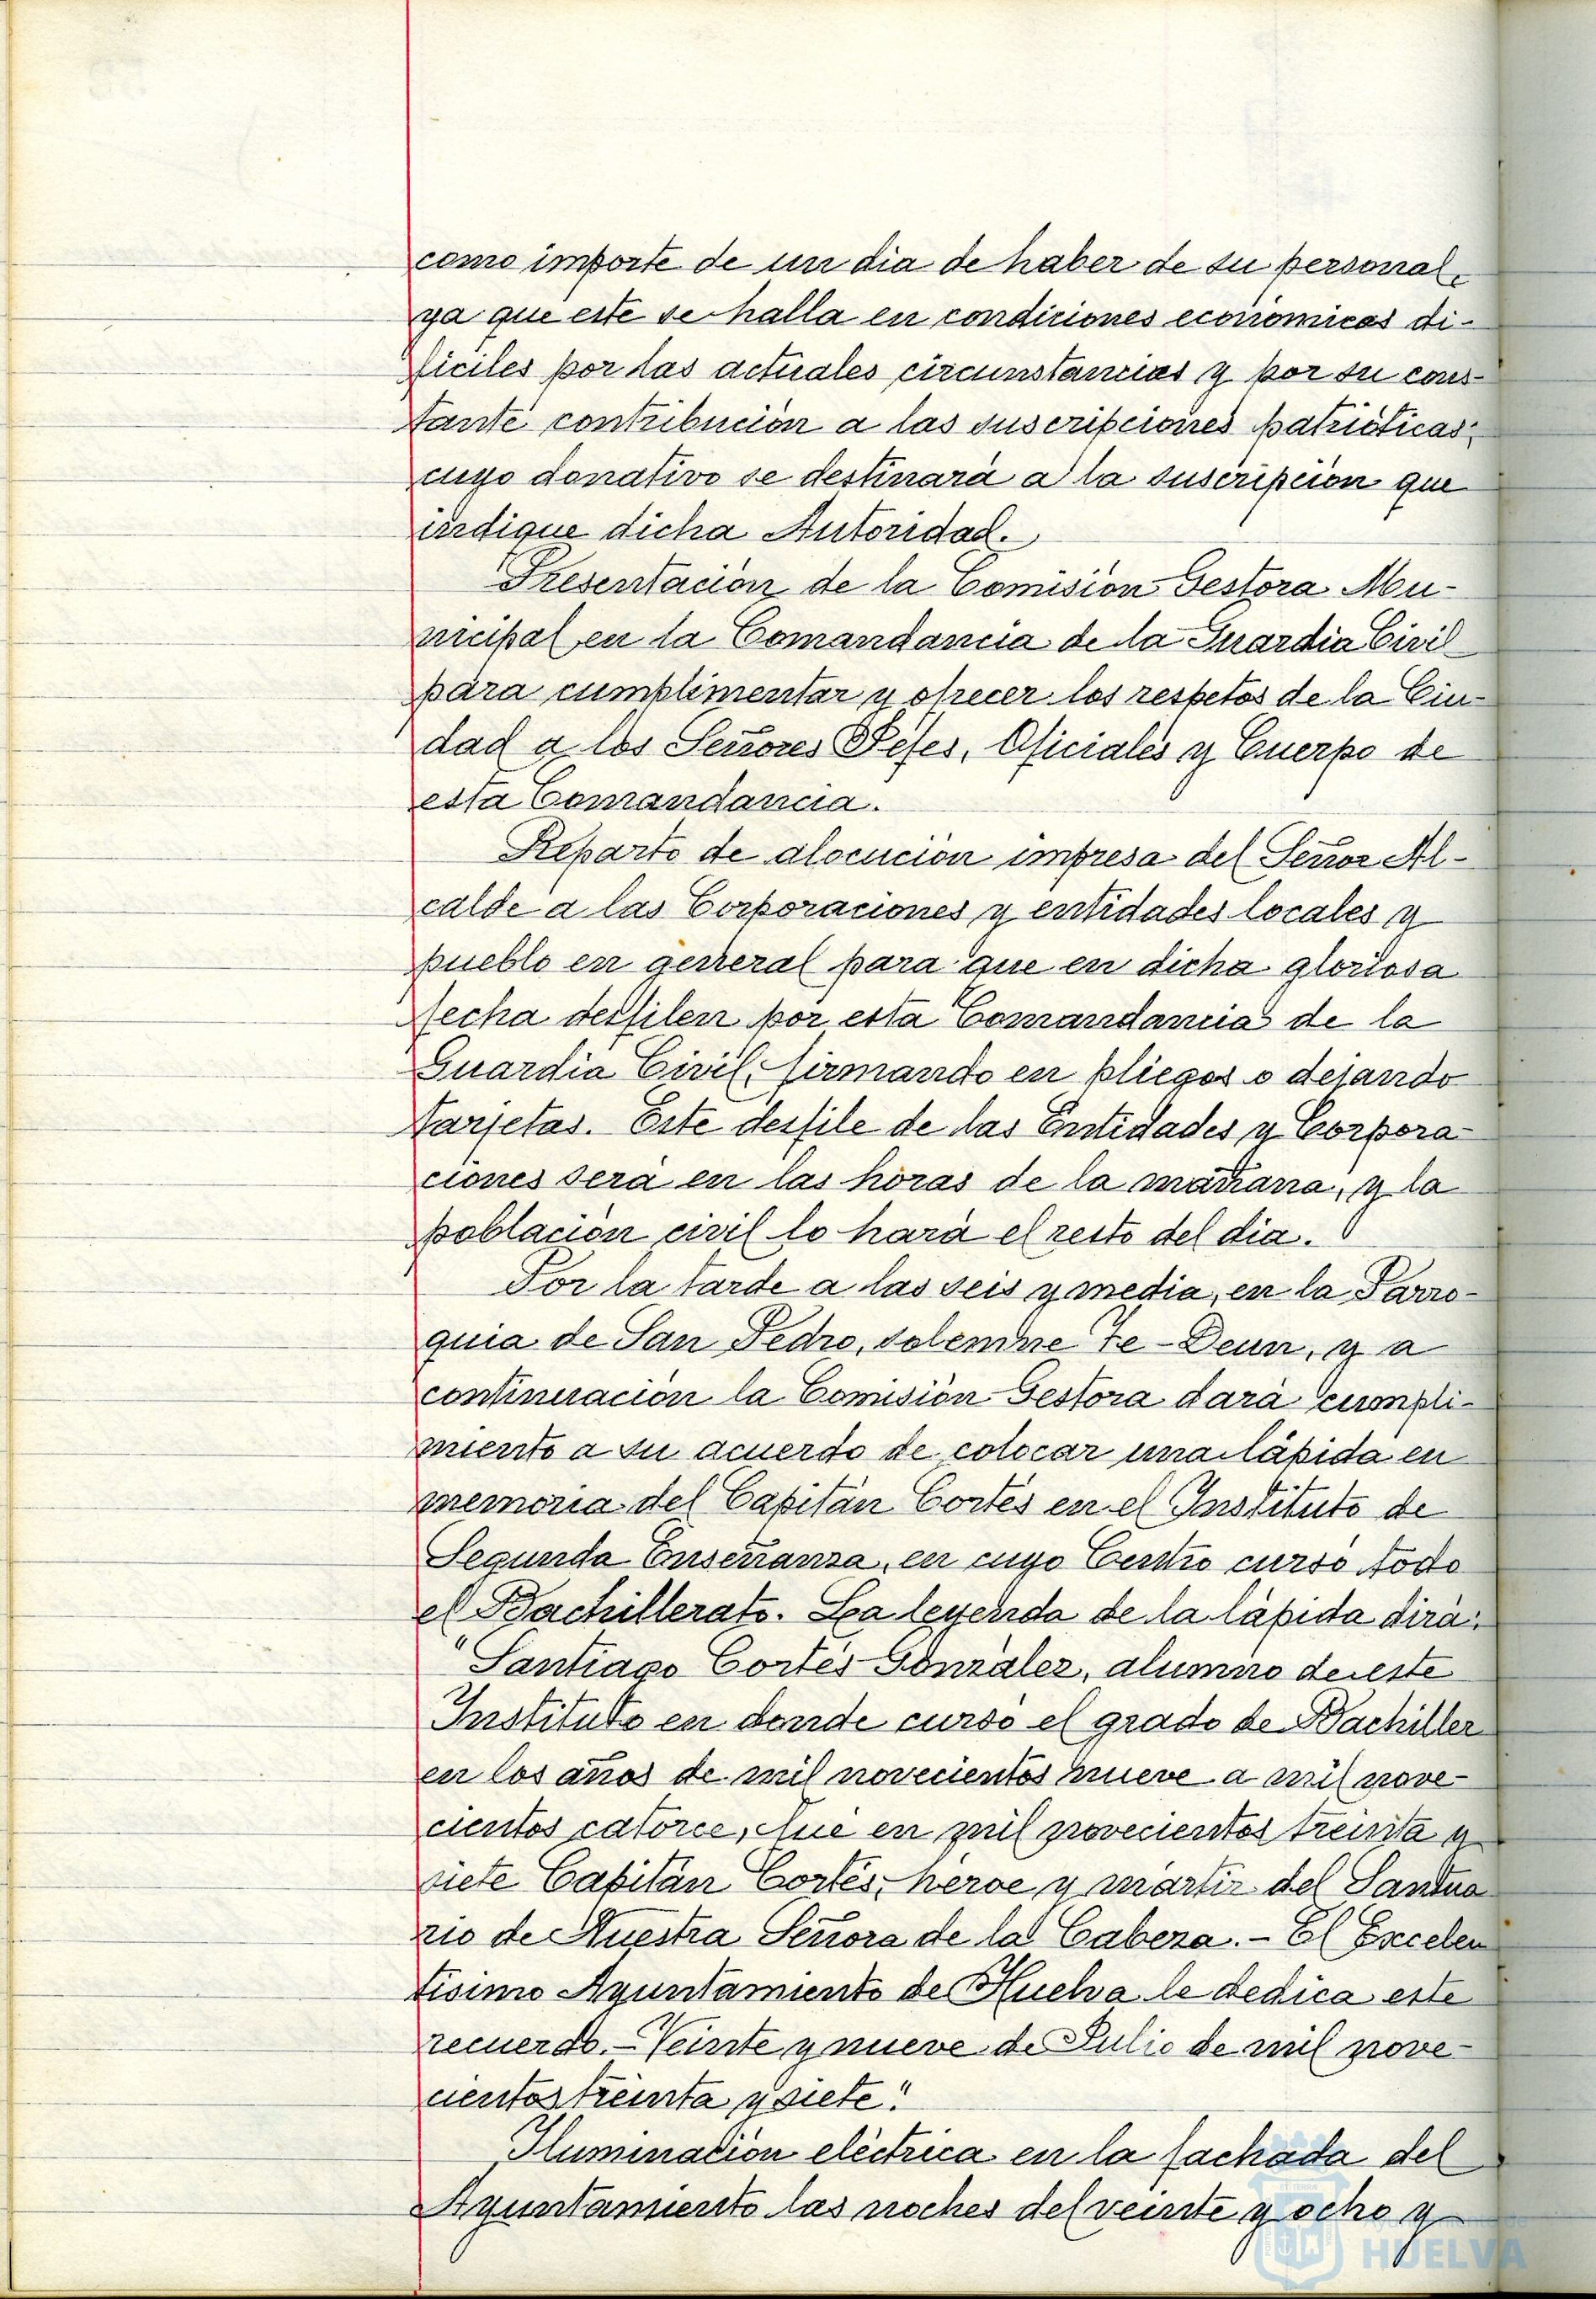 como importe de un dia de haber de su personal,
ya que este se halla en condiciones económicas di-
ficiles por las actuales circunstancias y por su cons-
tante contribución a las suscripciones patrióticas;
cuyo donativo se destinará a la suscripción que
indique dicha Autoridad.
Presentación de la Comisión Gestora Mu-
nicipal en la Comandancia de la Guardia Civil
para cumplimentar y ofrecer los respetos de la Ciu-
dad a los Señores Jefes, Oficiales y Cuerpo de
esta Comandancia.
Reparto de alocución impresa del Señor Al-
calde a las Corporaciones y entidades locales y
pueblo en general para que en dicha gloriosa
fecha desfilen por esta Comandancia de la
Guardia Civil, firmando en pliegos o dejando
tarjetas. Este desfile de las Entidades y Corpora-
ciones será en las horas de la mañana, y la
población civil lo hará el resto del dia.
Por la tarde a las seis y media, en la Parro-
quia de San Pedro, solemne Te-Deun, y a
continuación la Comisión Gestora dará cumpli-
miento a su acuerdo de colocar una lápida en
memoria del Capitán Cortés en el Instituto de
Segunda Enseñanza, en cuyo Centro cursó todo
el Bachillerato. La leyenda de la lápida dirá:
"Santiago Cortés González, alumno de este
Instituto en donde cursó el grado de Bachiller
en los años de mil novecientos nueve a mil nove-
cientos catorce, fué en mil novecientos treinta y
siete Capitán Cortés, héroe y mártir del Santua
rio de Nuestra Señora de la Cabeza.- El Excelen
tísimo Ayuntamiento de Huelva le dedica este
recuerdo.- Veinte y nueve de Julio de mil nove-
cientos treinta y siete".
Iluminación eléctrica en la fachada del
Ayuntamiento las noches del veinte y ocho y
HUELVA